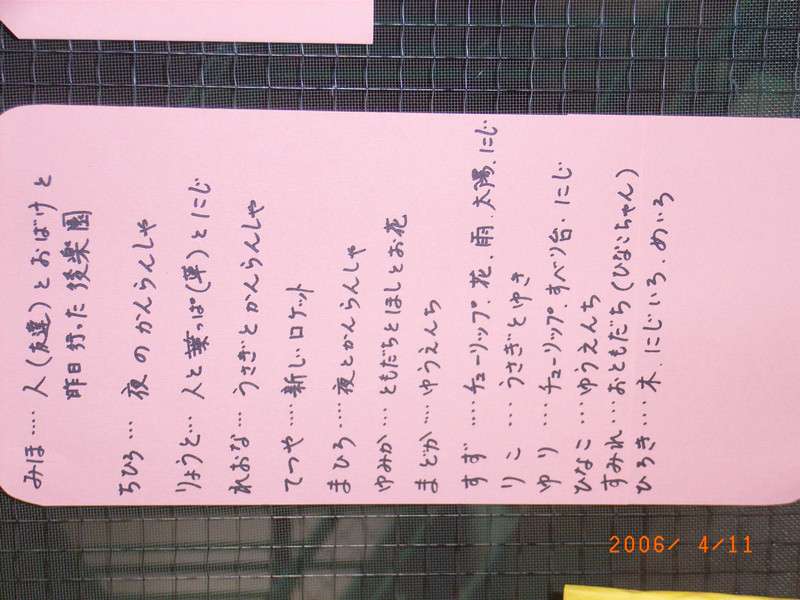 みほ…‥人(友達)とおばけと
昨日行った後楽園
ちひろ…夜のかんらんしゃ
りょうと…人と葉っぱ(草)とにじ
れおな…うさぎとかんらんしゃ
てつや‥‥新しいロケット
まひろ‥‥夜とかんらんしゃ
ゆみか…ともだちとほしとお花
まどか‥‥ゆうえんち
すず‥‥チューリップ、花、雨、太陽、にじ
りこ…うさぎとゆき
ゆり…チューリップ、すべり台、にじ
ひなこ…ゆうえんち
すみれ…おともだち(ひなこちゃん)
ひろき…木、にじいろ、めいろ
2006/ 4/11